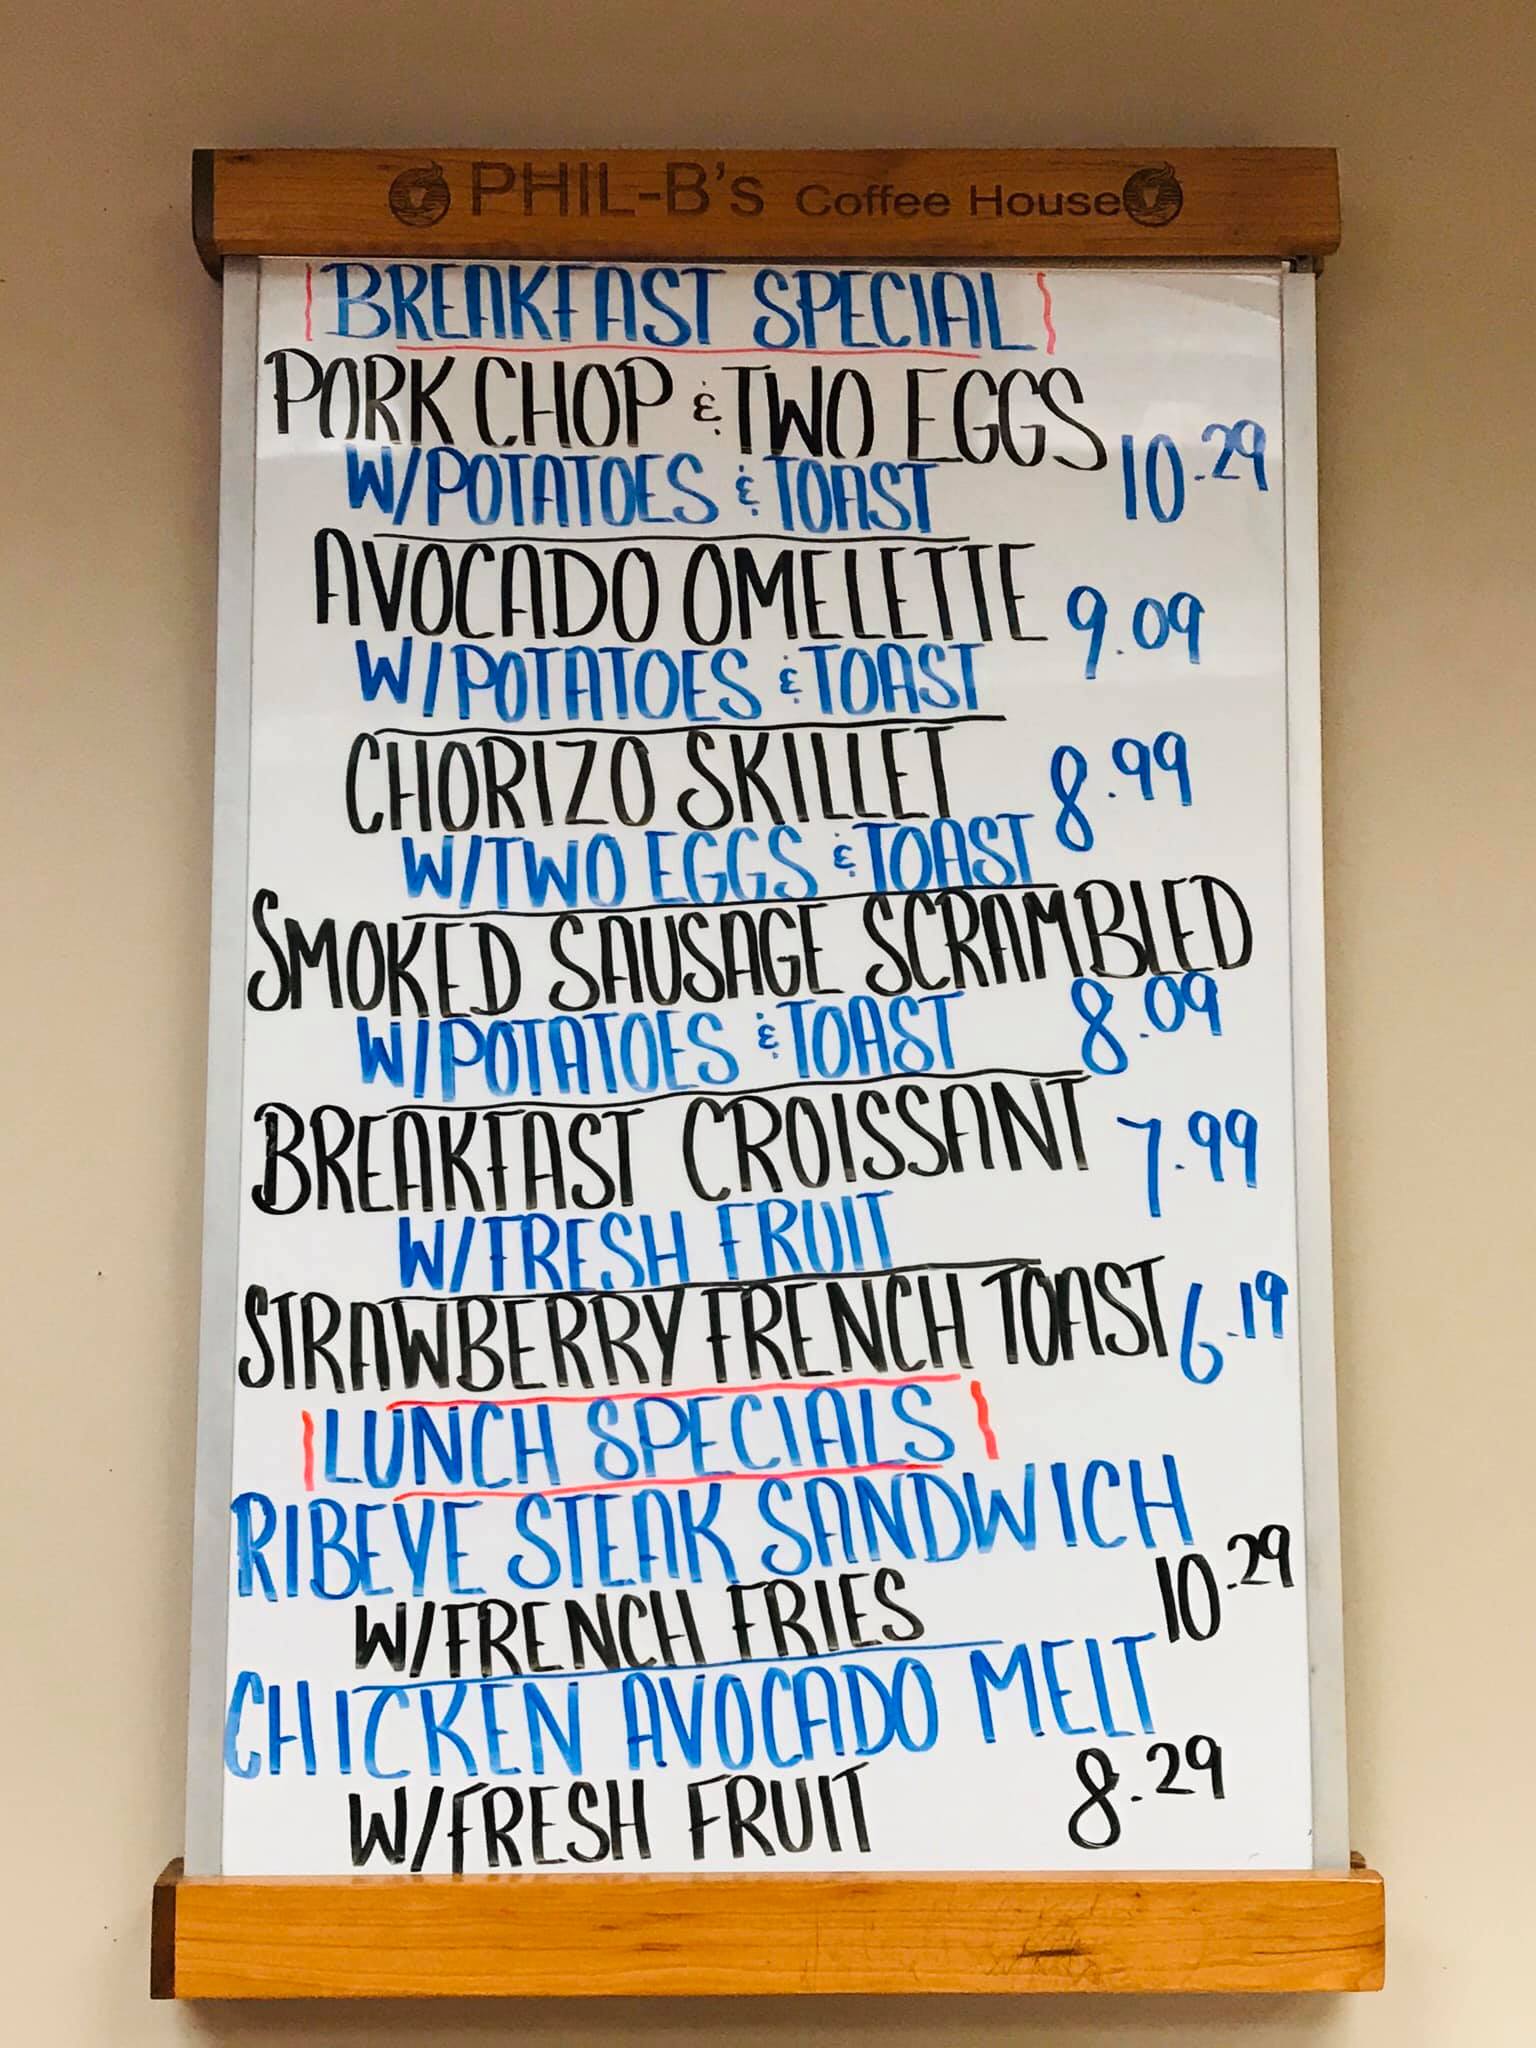 PHIL-B's Coffee House
BREAKFAST SPECIAL
PORK CHOP & TWO EGGS
W/POTATOES & TOAST 10.29
AVOCADO OMELETTE 9.09
W/POTATOES & TOAST
CHORIZO SKILLET 8.99
W/TWO EGGS & TOAST
SMOKED SAUSAGE SCRAMBLED
W/POTATOES & TOAST 8.09
BREAKFAST CROISSANT 7.99
W/FRESH FRUIT
STRAWBERRY FRENCH TOAST 6.19
LUNCH SPECIALS
RIBEYE STEAK SANDWICH
W/FRENCH FRIES 10.29
CHICKEN AVOCADO MELT
W/FRESH FRUIT 8.29